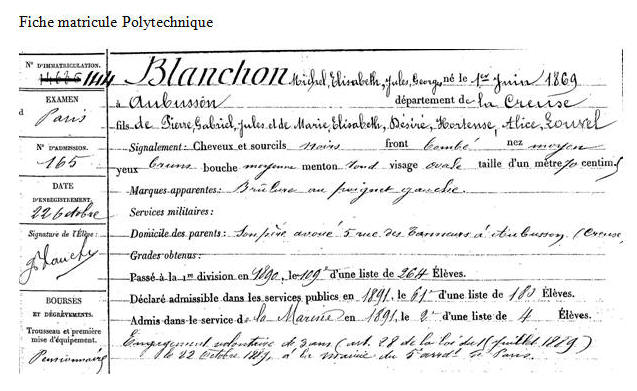 Fiche matricule Polytechnique
N° D'IMMATRICULATION.
1114
EXAMEN
d Paris
N° D'ADMISSION.
165
DATE
D'ENREGISTREMENT.
22 6tobre
Signature de l'Élève:
BOURSES
ET DÉGRÈVEMENTS.
Trousseau et première
mise d'équipement.
Pensionnaire
Blanchon Michel, Elisabeth, Jules, Georg, né le 1er Juin 1869
à Aubusson département de la Creuse
fils de Pierre, Gabriel, Jules et de Marie, Elisabeth, Désiré, Hortense, Alice,
Signalement: Cheveux et sourcils noirs front bombé nez moyen
yeux bruns bouche moyenne menton rond visage ovale taille d'un mètre 70 centim
Marques apparentes: Brûlure au poignet gauche.
Services militaires:
Domicile des parents: Son père avoué 5 rue des Tanneurs à Aubusson (Creuse,
Grades obtenus:
Passé à la 1re division en 1890, le 109e d'une liste de 264 Élèves.
Déclaré admissible dans les services publics en 1891, le 61e d'une liste de Élèves.
Admis dans le service de la Marine en 1891, le 2e d'une liste de 4 Élèves.
Engagement volontaire de 3 ans (art. 28 de la loi du 15 juillet 1889)
le 22 Octobre 1889, à la mairie du 5e arrdt de Paris.